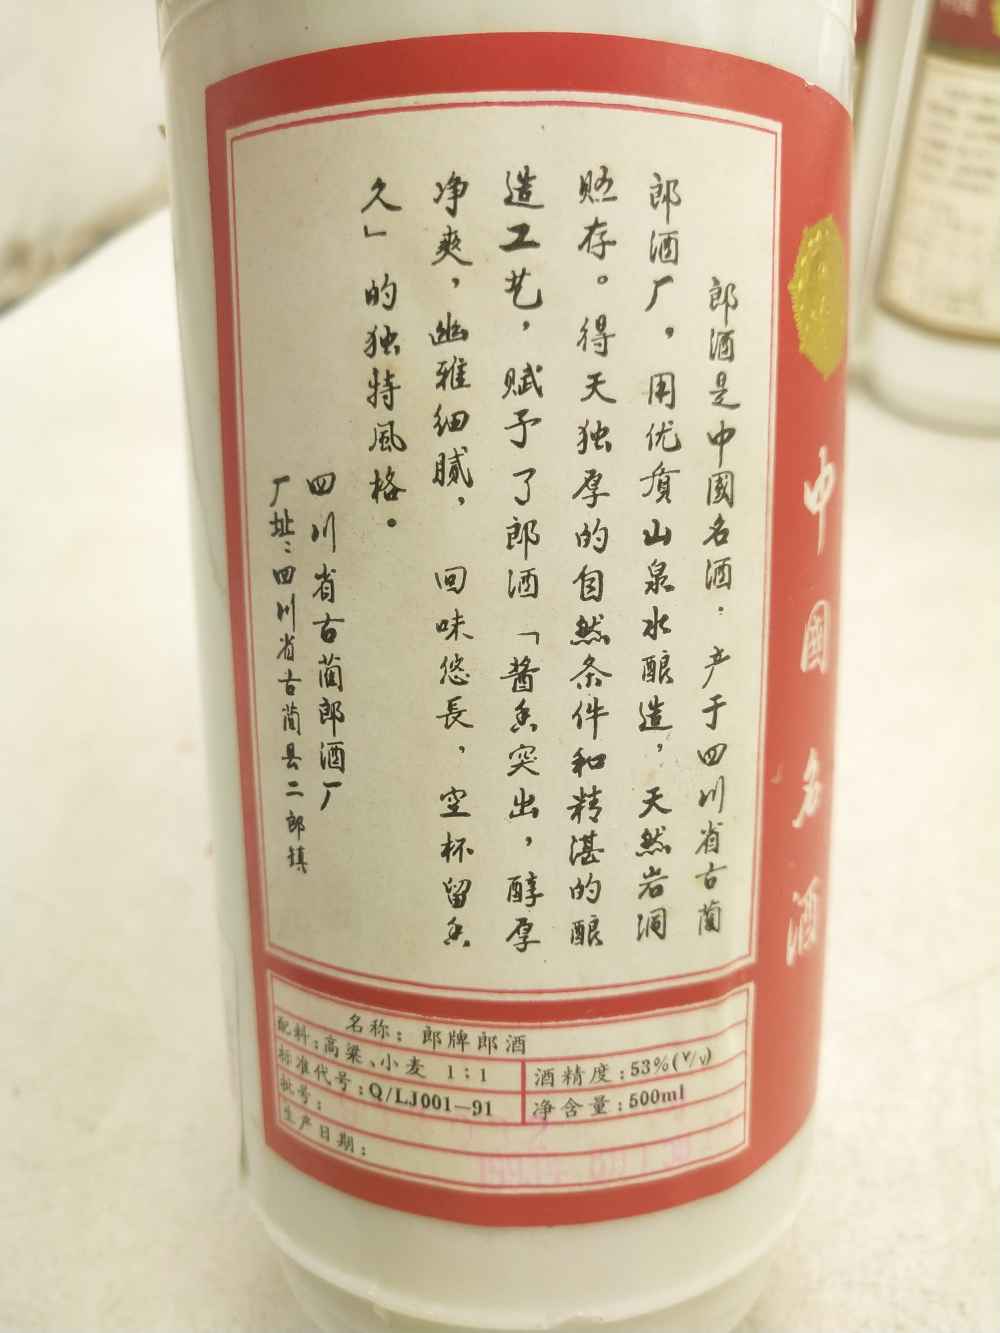 郎酒是中國名酒.产于四川省古藺
郎酒厂，用优質山泉水酿造，天然岩洞
贮存。得天独厚的自然条件和精湛的酿
造工艺，赋予了郎酒「酱香突出，醇厚
净爽，幽雅细腻，回味悠長，空杯留香
久」的独特風格。
四川省古藺郎酒厂
厂址：四川省古藺县二郎镇
中國名酒
名称：郎牌郎酒
配料：高粱、小麦 1：1
酒精度：53%(V/V)
标准代号：Q/LJ001—91
净含量：500ml
批号：
生产日期：